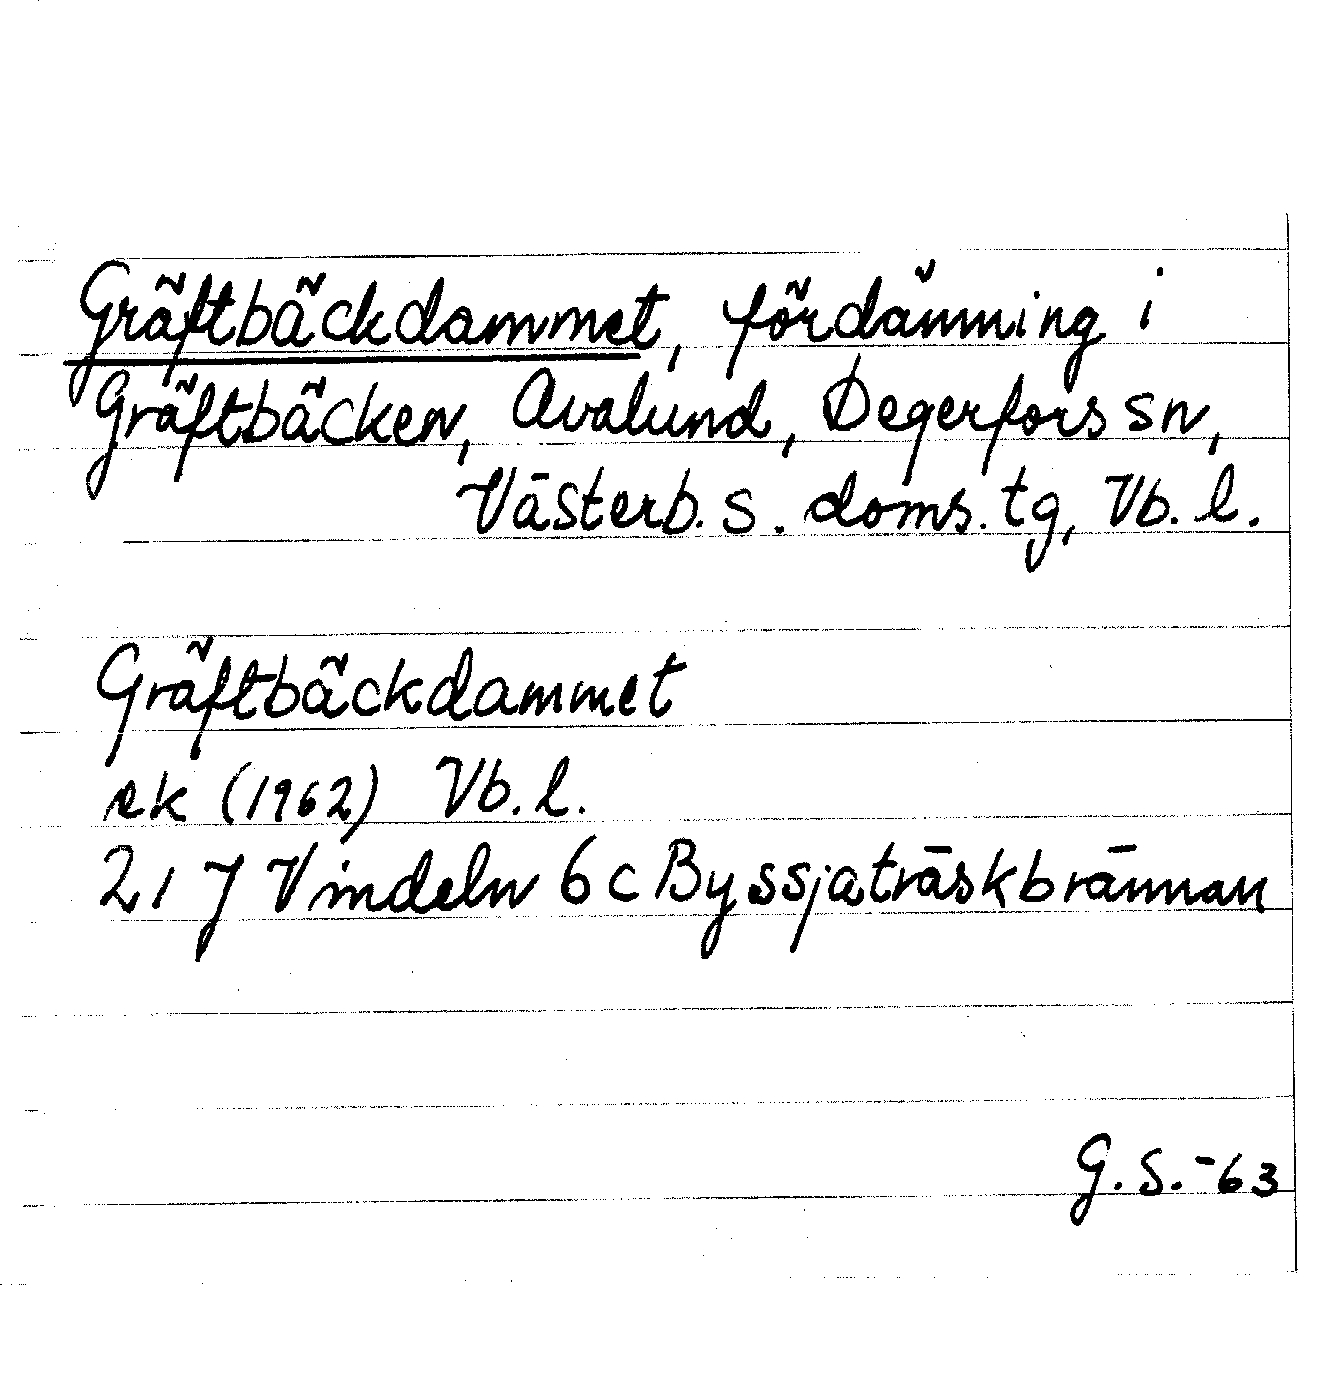 Gräftbäckdammet, fördämning i
Gräftbäcken, Avalund, Degerfors sn,
Västerb. s. doms. tg, Vb. l.
Gräftbäckdammet
ek (1962) Vb. l.
21 J Vindeln 6 c Byssjaträskbrännan
G. S. -63